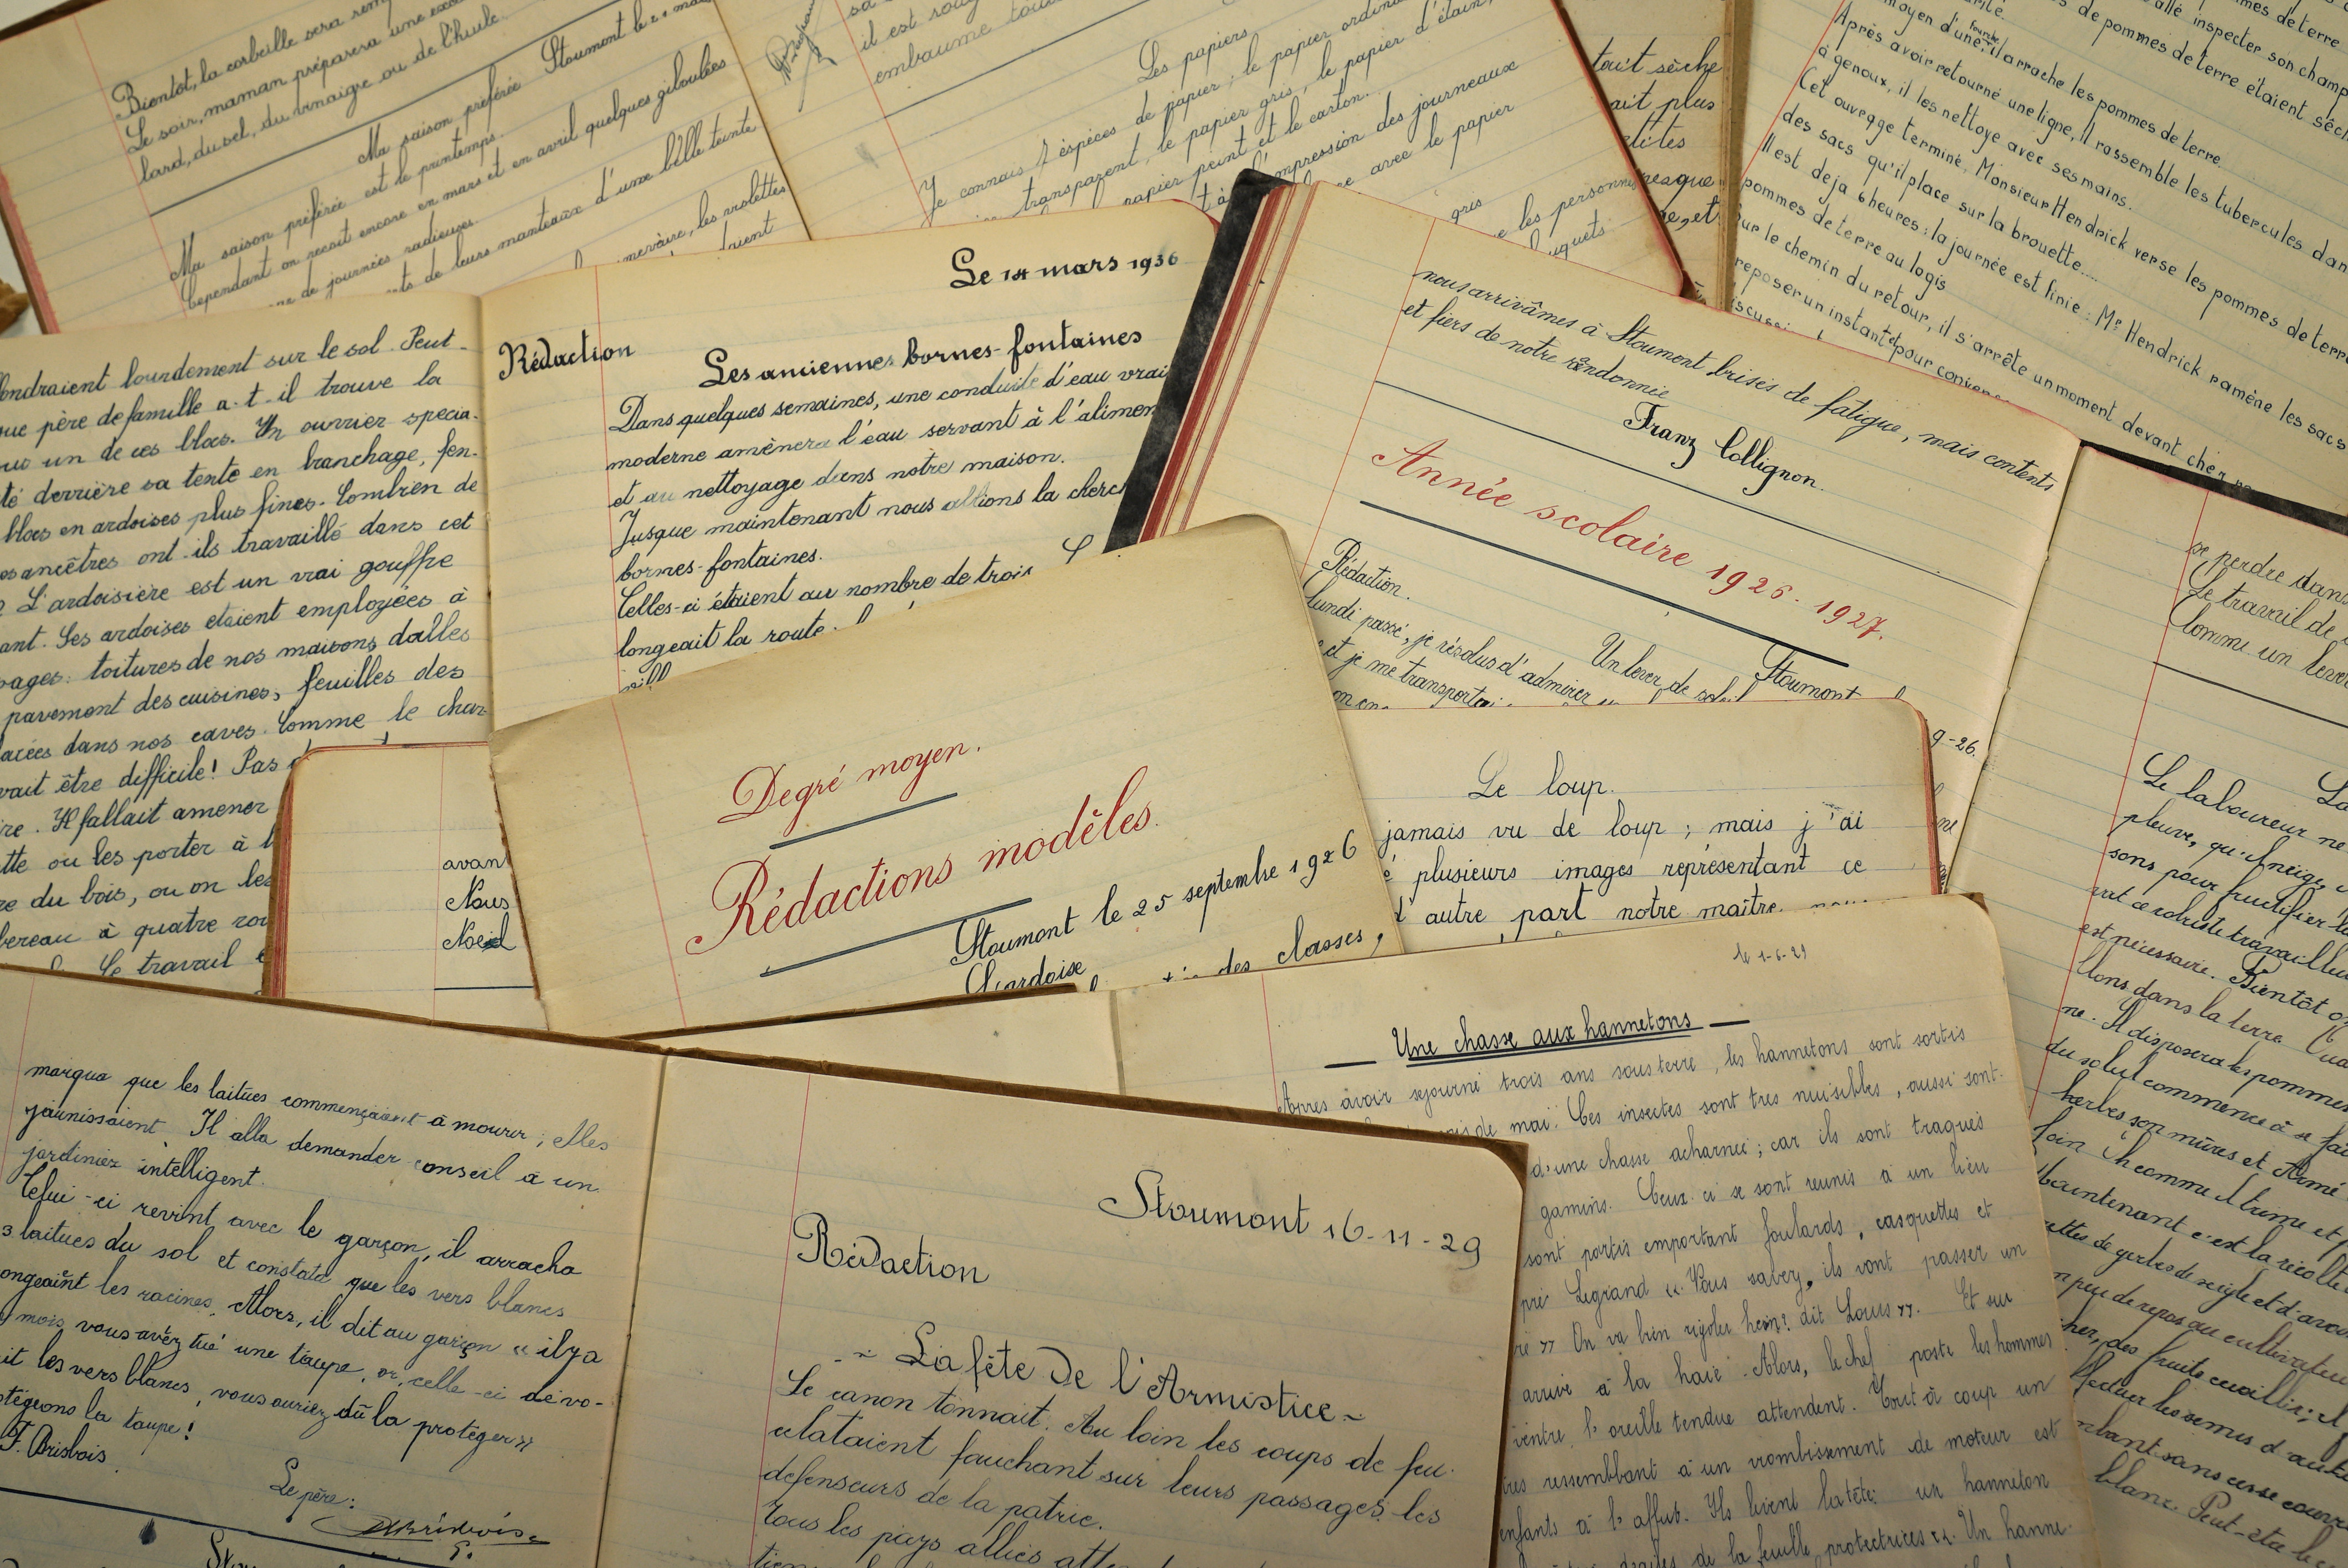 Bientôt, la corbeille sera
Le soir, maman préparera une
lard, du sel, du vinaigre ou de l'huile.
Stoumont le 21 ma
Ma saison préférée
Ma saison préférée est le printemps.
Cependant on reçoit encore en mars et en avril quelques giboulées
de journées radieuses.
de leurs manteaux d'une belle teinte
les violettes
il est
embaume tou
Les papiers
Je connais 7 éspèces de papier; le papier ordin
transparent, le papier gris, le papier d'étain,
papier peint et le carton.
mpression des journeaux
avec le papier
gris
les personnes
tout sèche
ait plus
etites
resque
allé inspecter son champ
de pommes de terre étaient séch
moyen d'une fourche il arrache les pommes de terre.
Après avoir retourné une ligne, il rassemble les tubercules dan
à genoux, il les nettoye avec ses mains.
Cet ouvrage terminé, Monsieur Hendrick verse les pommes de terre
des sacs qu'il place sur la brouette....
Il est deja 6 heures: la journée est finie: Mr Hendrick ramène les sacs
pommes de terre au logis
ur le chemin du retour, il s'arrête un moment devant chez
reposer un instant et pour
endraient lourdement sur le sol. Peut-
que père de famille a-t-il trouve la
un de ces blocs. Un ouvrier specia-
té derrière sa tente en branchage, fen-
blocs en ardoises plus fines. Combien de
os ancêtres ont-ils travaillé dans cet
? L'ardoisière est un vrai gouffre
ant. Ses ardoises etaient employées à
sages: toitures de nos maisons, dalles
pavement des cuisines, feuilles des
lacées dans nos caves. Comme le char-
vait être difficile! Pas
re. Il fallait amener
tte ou les porter à
re du bois, ou on les
bereau à quatre rou
Le travail
Le 14 mars 1936
Rédaction
Les anciennes bornes-fontaines
Dans quelques semaines, une conduite d'eau vrai
moderne amènera l'eau servant à l'alimen
et au nettoyage dans notre maison.
Jusque maintenant nous allions la cherc
bornes-fontaines.
Celles-ci étaient au nombre de trois
longeait la route.
nous arrivâmes à Stoumont brisés de fatigue, mais contents
et fiers de notre randonnée
Franz Collignon.
Année scolaire 1926-1927.
Rédaction.
Stoumont
9-26.
Un lever de soleil
lundi passé, je résolus d'admirer un
et je me transportai
avant
Nous
Noël
Degré moyen.
Rédactions modèles.
Stoumont le 25 septembre 1926
L'ardoise
des classes,
Le loup.
jamais vu de loup; mais j'ai
é plusieurs images représentant ce
d'autre part notre maître
se perdre dans
Le travail de
Comme un lever
Le laboureur ne
pleuve, qu'il neige,
sons pour fructifier la
est ce robuste travailleur
est nécessaire. Bientôt
llons dans la terre
ne. Il disposera les pommes
du soleil commence à se fai
herbes son mûres et Armé
foin
Maintenant c'est la récolte
ttes de gerbes de seigle et d'avoi
n peu de repos au cultivateur
des fruits cueillir; il
ffectuer les semis d'aut
mbant sans cesse courir
blanc. Peut-être
le 1-6-29
Une chasse aux hannetons
Apres avoir sejourné trois ans sous terre, les hannetons sont sortis
de mai. Ces insectes sont tres nuisibles, aussi sont-
d'une chasse acharnée; car ils sont traqués
gamins. Ceux-ci se sont reunis a un lieu
sont partis emportant foulards, casquettes et
Legrand « Vous savez, ils vont passer un
» On va bien rigoler hein? dit Louis ». Et sur
arrivé à la haie. Alors, le chef poste les hommes
ventre, l'oreille tendue attendent. Tout à coup un
ressemblant à un vrombissement de moteur est
enfants à l'affut. Ils lèvent la tête: un hanneton
de la feuille protectrices ». Un hanne-
marqua que les laitues commençaient à mourir; elles
jaunissaient. Il alla demander conseil à un
jardinier intelligent.
Celui-ci revint avec le garçon, il arracha
3 laitues du sol et constata que les vers blancs
ongeaient les racines. Alors, il dit au garçon « il y a
mois, vous avez tué une taupe, or, celle-ci dévo-
it les vers blancs, vous auriez dû la protéger »
otégeons la taupe!
F. Brisbois.
Le père:
Stoumont 16-11-29
Rédaction
La fête de l'Armistice
Le canon tonnait. Au loin les coups de feu
eclataient fauchant sur leurs passages les
defenseurs de la patrie.
Tous les pays alliés